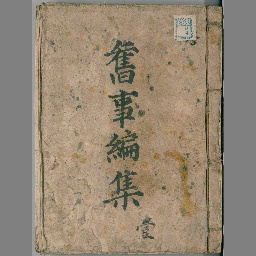 舊事編集
壹